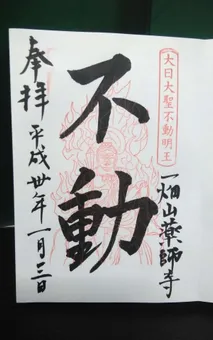 大日大聖不動明王
一畑山薬師寺
不動
奉拝
平成卅年一月三日